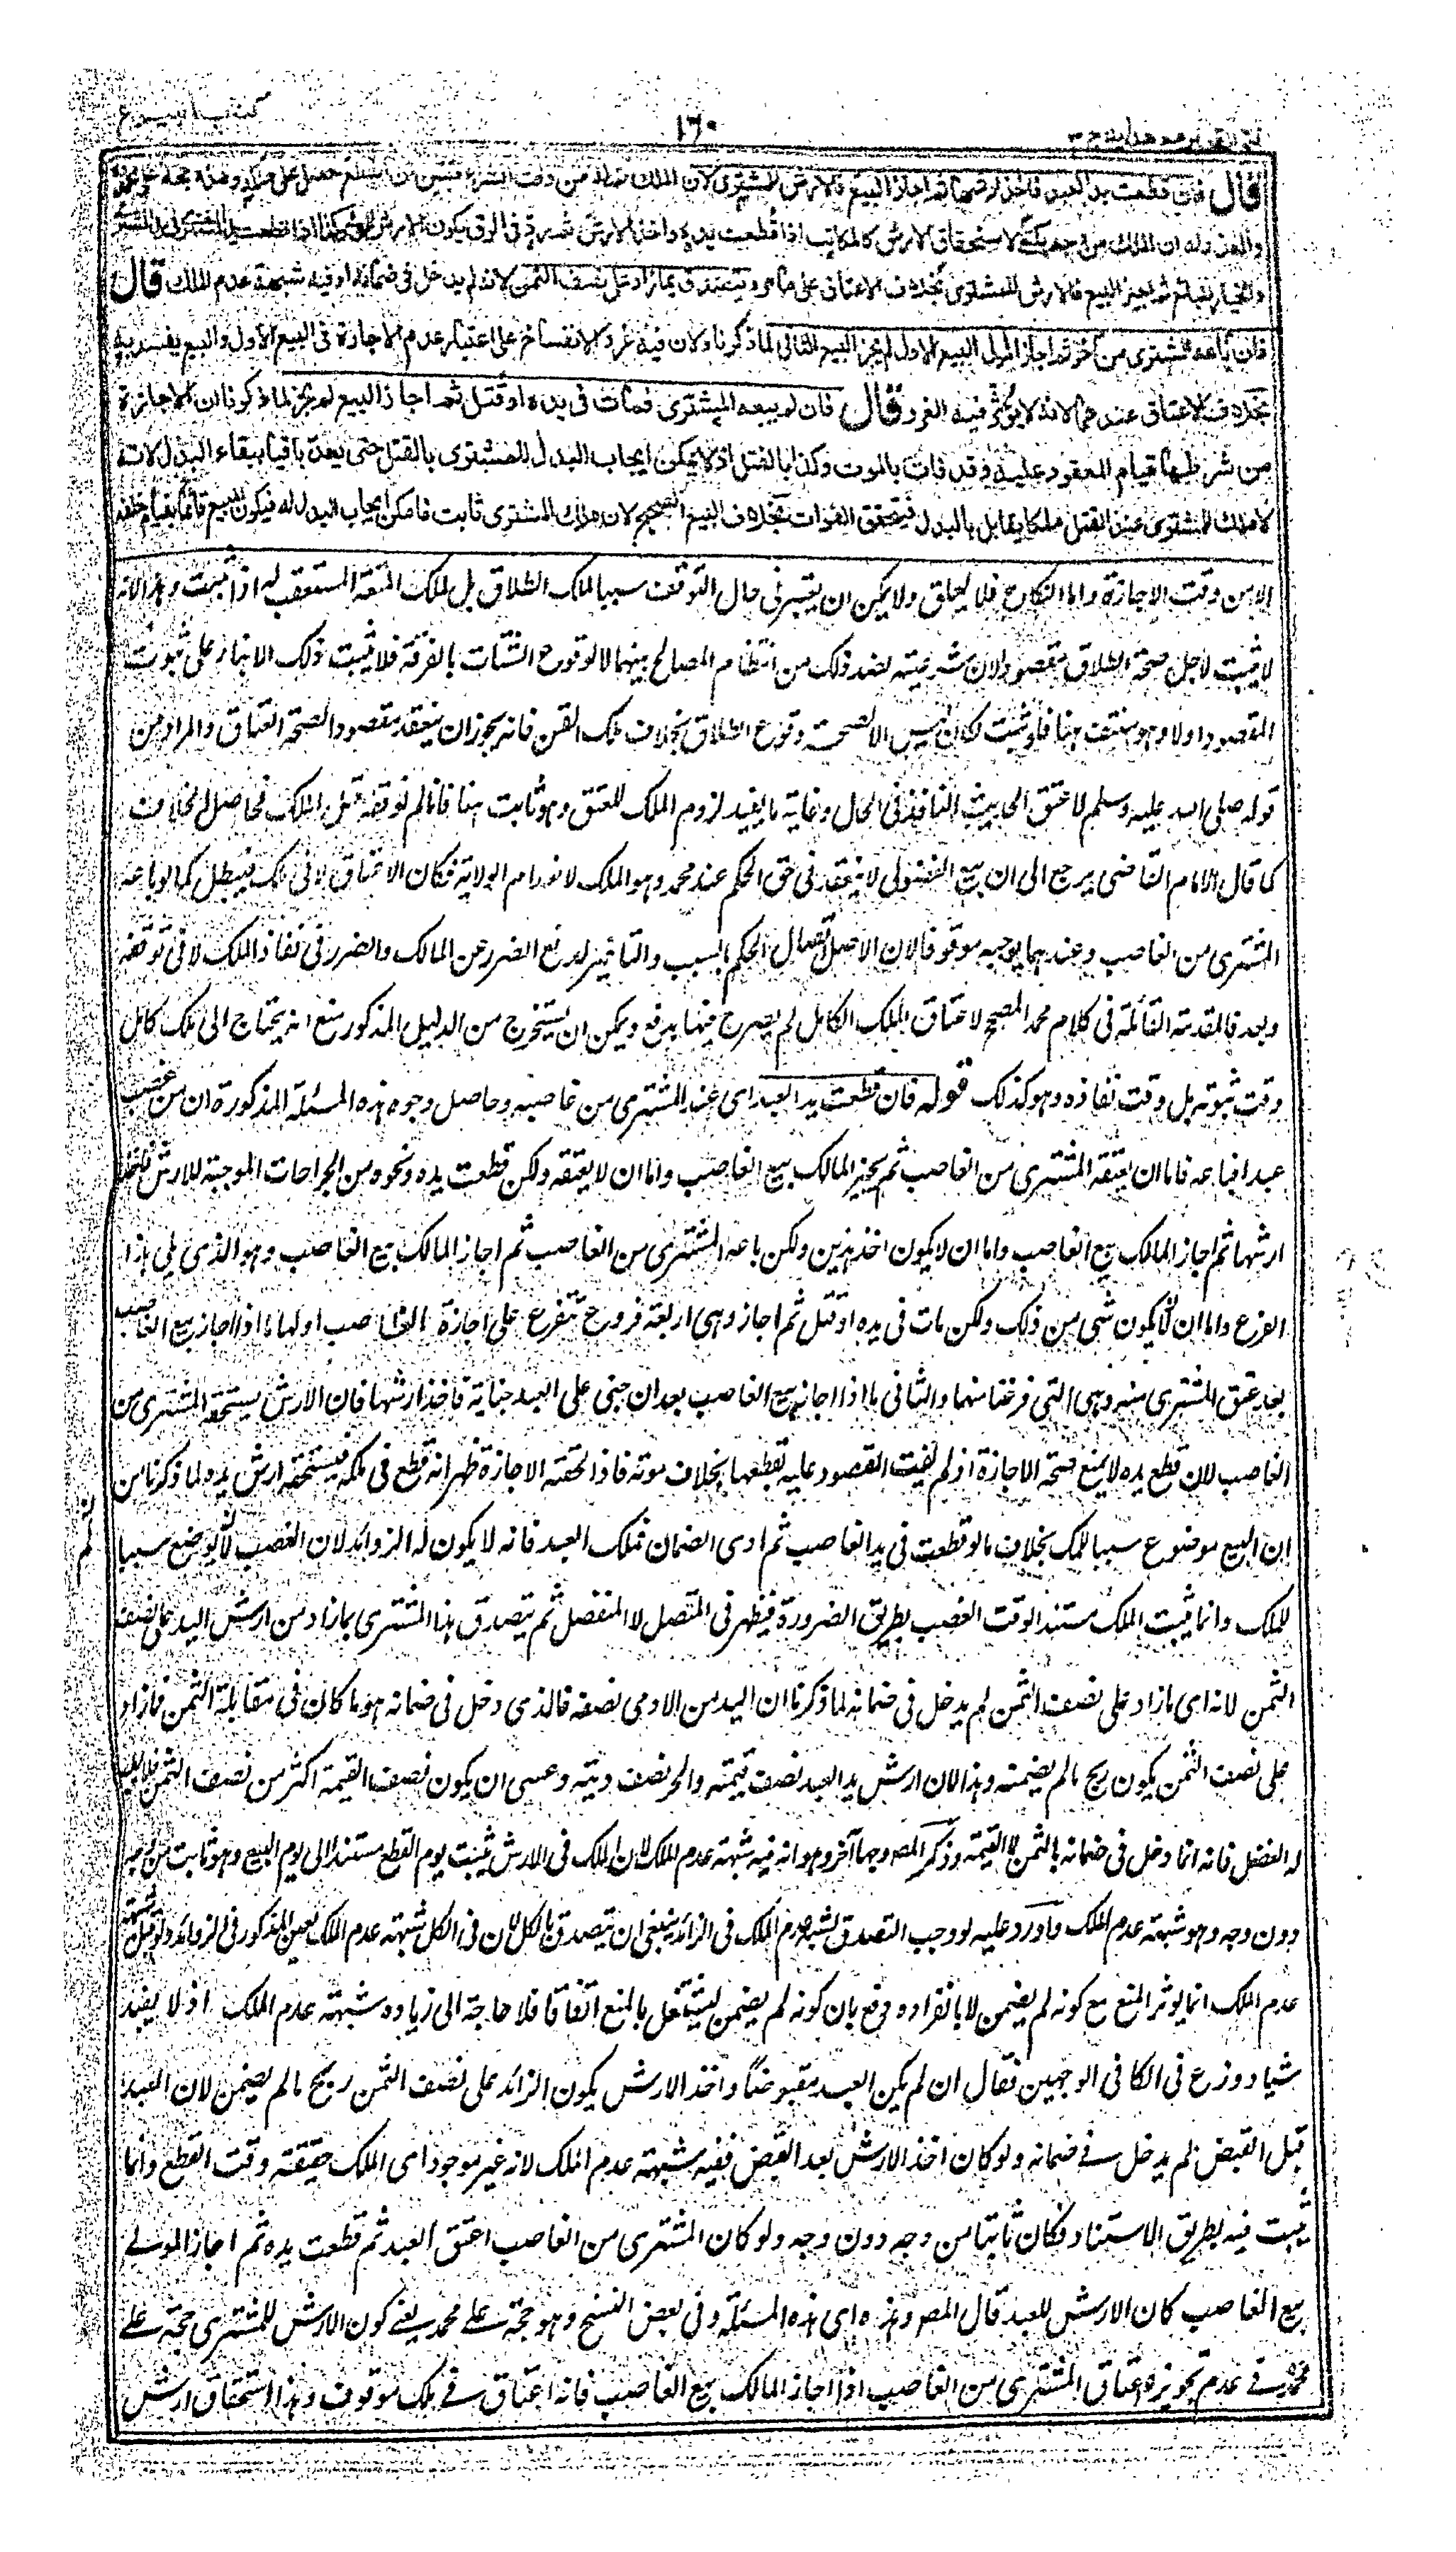 كتاب البيوع
١٦٠
فتح القدير مع هداية ج ٣
قال فان قطعت يد العبد فاخذ ارشها ثم اجاز البيع فالارش للمشتري لان الملك قد تم له من وقت الشراء فتبين ان القطع حصل على ملكه وهذه حجة على محمد
والعذر له ان الملك من وجه يكفي لاستحقاق الارش كالمكاتب اذا قطعت يده واخذ الارش ثم رد في الرق يكون الارش للمولى وكذا اذا قطعت يد المشترى في يد المشتري
والخيار للبائع ثم اجيز البيع فالارش للمشتري بخلاف الاعتاق على ما مر ويتصدق بما زاد على نصف الثمن لانه لم يدخل في ضمانه او فيه شبهة عدم الملك قال
فان باعه المشتري من آخر ثم اجاز المولى البيع الاول لم يجز البيع الثاني لما ذكرنا ولان فيه غرر الانفساخ على اعتبار عدم الاجازة في البيع الاول والبيع يفسد به
بخلاف الاعتاق عندهما لانه لا يؤثر فيه الغرر قال فان لم يبعه المشتري فمات في يده او قتل ثم اجاز البيع لم يجز لما ذكرنا ان الاجازة
من شرطها قيام المعقود عليه وقد فات بالموت وكذا بالقتل اذ لا يمكن ايجاب البدل للمشتري بالقتل حتى يعد باقيا ببقاء البدل لانه
لا ملك للمشتري عند القتل ملكا يقابل بالبدل فيتحقق الفوات بخلاف البيع الصحيح لان ملك المشتري ثابت فامكن ايجاب البدل له فيكون المبيع قائما بقيام خلفه
الا من وقت الاجازة واما النكاح فلا يعلق ولا يمكن ان يعتبر في حال التوقف سببا لملك الطلاق بل لملك المتعة المستعقب له اذا ثبت وهذا لانه
لا يثبت لاجل صحة الطلاق مقصودا لان شرعيته لضد ذلك من انتظام المصالح بينهما لا لوقوع الشتات بالفرقة فلا يثبت ذلك الا بناء على ثبوت
المقصود اولا وهو منتف هنا فلو ثبت لكان ليس الا لصحة وقوع الطلاق بخلاف ملك القن فانه يجوز ان ينعقد مقصودا لصحة العتاق والمراد من
قوله صلى الله عليه وسلم لا عتق الحديث النافذ في الحال وغاية ما يفيد لزوم الملك للعتق وهو ثابت هنا فانا لم نوقفه قبل الملك فحاصل الخلاف
كما قال الامام القاضي يرجع الى ان بيع الفضولي لا ينعقد في حق الحكم عند محمد وهو الملك لانعدام الولاية فكان الاعتاق لا في ملك فيبطل كما لو باعه
المشتري من الغاصب وعندهما يوجبه موقوفا لان الاصل اتصال الحكم بالسبب والتاخير لدفع الضرر عن المالك والضرر في نفاذ الملك لا في توقفه
وبعد فالمقدمة القائلة في كلام محمد المصحح لاعتاق الملك الكامل لم يصرح فيها بدفع ويمكن ان يستخرج من الدليل المذكور منع انه يحتاج الى ملك كامل
وقت ثبوته بل وقت نفاذه وهو كذلك قوله فان قطعت يد العبد اي عند المشتري من غاصبه وحاصل وجوه هذه المسئلة المذكورة ان من غصب
عبدا فباعه فاما ان يعتقه المشتري من الغاصب ثم يجيز المالك بيع الغاصب واما ان لا يعتقه ولكن قطعت يده ونحوه من الجراحات الموجبة للارش فاخذ
ارشها ثم اجاز المالك بيع الغاصب واما ان لا يكون احد هذين ولكن باعه المشتري من الغاصب ثم اجاز المالك بيع الغاصب وهو الذي يلي هذا
الفرع واما ان لا يكون شي من ذلك ولكن مات في يده او قتل ثم اجاز وهي اربعة فروع تتفرع على اجازة الغاصب اولها ما اذا اجاز بيع الغاصب
بعد عتق المشتري منه وهي التي فرغنا منها والثاني ما اذا اجاز بيع الغاصب بعد ان جنى على العبد جناية فاخذ ارشها فان الارش يستحقه المشتري من
الغاصب لان قطع يده لا يمنع صحة الاجازة اذ لم يفت المقصود عليه بقطعها بخلاف موته فاذا لحقته الاجازة ظهر انه قطع في ملكه فيستحقه ارش يده لما ذكرنا من
ان البيع موضوع سببا للملك بخلاف ما لو قطعت في يد الغاصب ثم ادى الضمان فملك العبد فانه لا يكون له الزوائد لان الغصب لم يوضع سببا
للملك وانما يثبت الملك مستندا لوقت الغصب بطريق الضرورة فيظهر في المتصل لا المنفصل ثم يتصدق هذا المشتري بما زاد من ارش اليد على نصف
الثمن لانه اي ما زاد على نصف الثمن لم يدخل في ضمانه لما ذكرنا ان اليد من الادمي نصفه فالذي دخل في ضمانه هو ما كان في مقابلة الثمن فما زاد
على نصف الثمن يكون ربح ما لم يضمنه وهذا لان ارش يد العبد نصف قيمته والحر نصف ديته وعسى ان يكون نصف القيمة اكثر من نصف الثمن فلا يطيب
له الفضل فانه انما دخل في ضمانه بالثمن لا القيمة وذكر المصـ وجها آخر وهو انه فيه شبهة عدم الملك لان الملك في الارش يثبت يوم القطع مستندا الى يوم البيع وهو ثابت من وجه
دون وجه وهو شبهة عدم الملك واورد عليه لو وجب التصدق لشبهة عدم الملك في الزائد ينبغي ان يتصدق بالكل لان في الكل شبهة عدم الملك المذكور في الزوائد ولو قيل شبهة
عدم الملك انما يوثر المنع مع كونه لم يضمن لا بانفراده دفع بان كونه لم يضمن يستقل بالمنع اتفاقا فلا حاجة الى زيادة شبهة عدم الملك اذ لا يفيد
شيا ووزع في الكافي الوجهين فقال ان لم يكن العبد مقبوضا واخذ الارش يكون الزائد على نصف الثمن ربح ما لم يضمن لان العبد
قبل القبض لم يدخل في ضمانه ولو كان اخذ الارش بعد القبض ففيه شبهة عدم الملك لانه غير موجود اي الملك حقيقة وقت القطع وانما
يثبت فيه بطريق الاستناد فكان ثابتا من وجه دون وجه ولو كان المشتري من الغاصب اعتق العبد ثم قطعت يده ثم اجاز المولى
بيع الغاصب كان الارش للعبد قال المصـ وهذه اي هذه المسئلة وفي بعض النسخ وهو حجة على محمد يعني كون الارش للمشتري حجة على
محمد في عدم تجويزه اعتاق المشتري من الغاصب اذا اجاز المالك بيع الغاصب فانه اعتاق في ملك موقوف وهذا استحقاق ارش